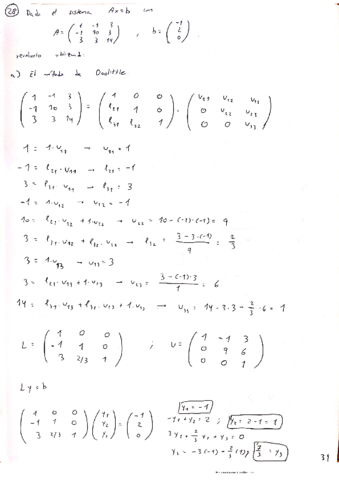 28) Dado el sistema Ax=b con
A = ( 1 -1 3 ; -1 10 3 ; 3 3 14 ) , b = ( -1 ; 2 ; 0 )
resolverlo utilizando:
a) El método de Doolittle.
( 1 -1 3 ; -1 10 3 ; 3 3 14 ) = ( 1 0 0 ; l₂₁ 1 0 ; l₃₁ l₃₂ 1 ) · ( u₁₁ u₁₂ u₁₃ ; 0 u₂₂ u₂₃ ; 0 0 u₃₃ )
1 = 1·u₁₁ → u₁₁ = 1
-1 = l₂₁·u₁₁ → l₂₁ = -1
3 = l₃₁·u₁₁ → l₃₁ = 3
-1 = 1·u₁₂ → u₁₂ = -1
10 = l₂₁·u₁₂ + 1·u₂₂ → u₂₂ = 10-(-1)·(-1) = 9
3 = l₃₁·u₁₂ + l₃₂·u₂₂ → l₃₂ = (3-3·(-1))/9 = 2/3
3 = 1·u₁₃ → u₁₃ = 3
3 = l₂₁·u₁₃ + 1·u₂₃ → u₂₃ = (3-(-1)·3)/1 = 6
14 = l₃₁·u₁₃ + l₃₂·u₂₃ + 1·u₃₃ → u₃₃ = 14-3·3-2/3·6 = 1
L = ( 1 0 0 ; -1 1 0 ; 3 2/3 1 ) ; U = ( 1 -1 3 ; 0 9 6 ; 0 0 1 )
Ly = b
( 1 0 0 ; -1 1 0 ; 3 2/3 1 ) ( y₁ ; y₂ ; y₃ ) = ( -1 ; 2 ; 0 )
y₁ = -1
-y₁+y₂ = 2 ; y₂ = 2-1 = 1
3y₁ + 2/3 y₂ + y₃ = 0
y₃ = -3(-1) - 2/3 (1) ; 7/3 = y₃
31